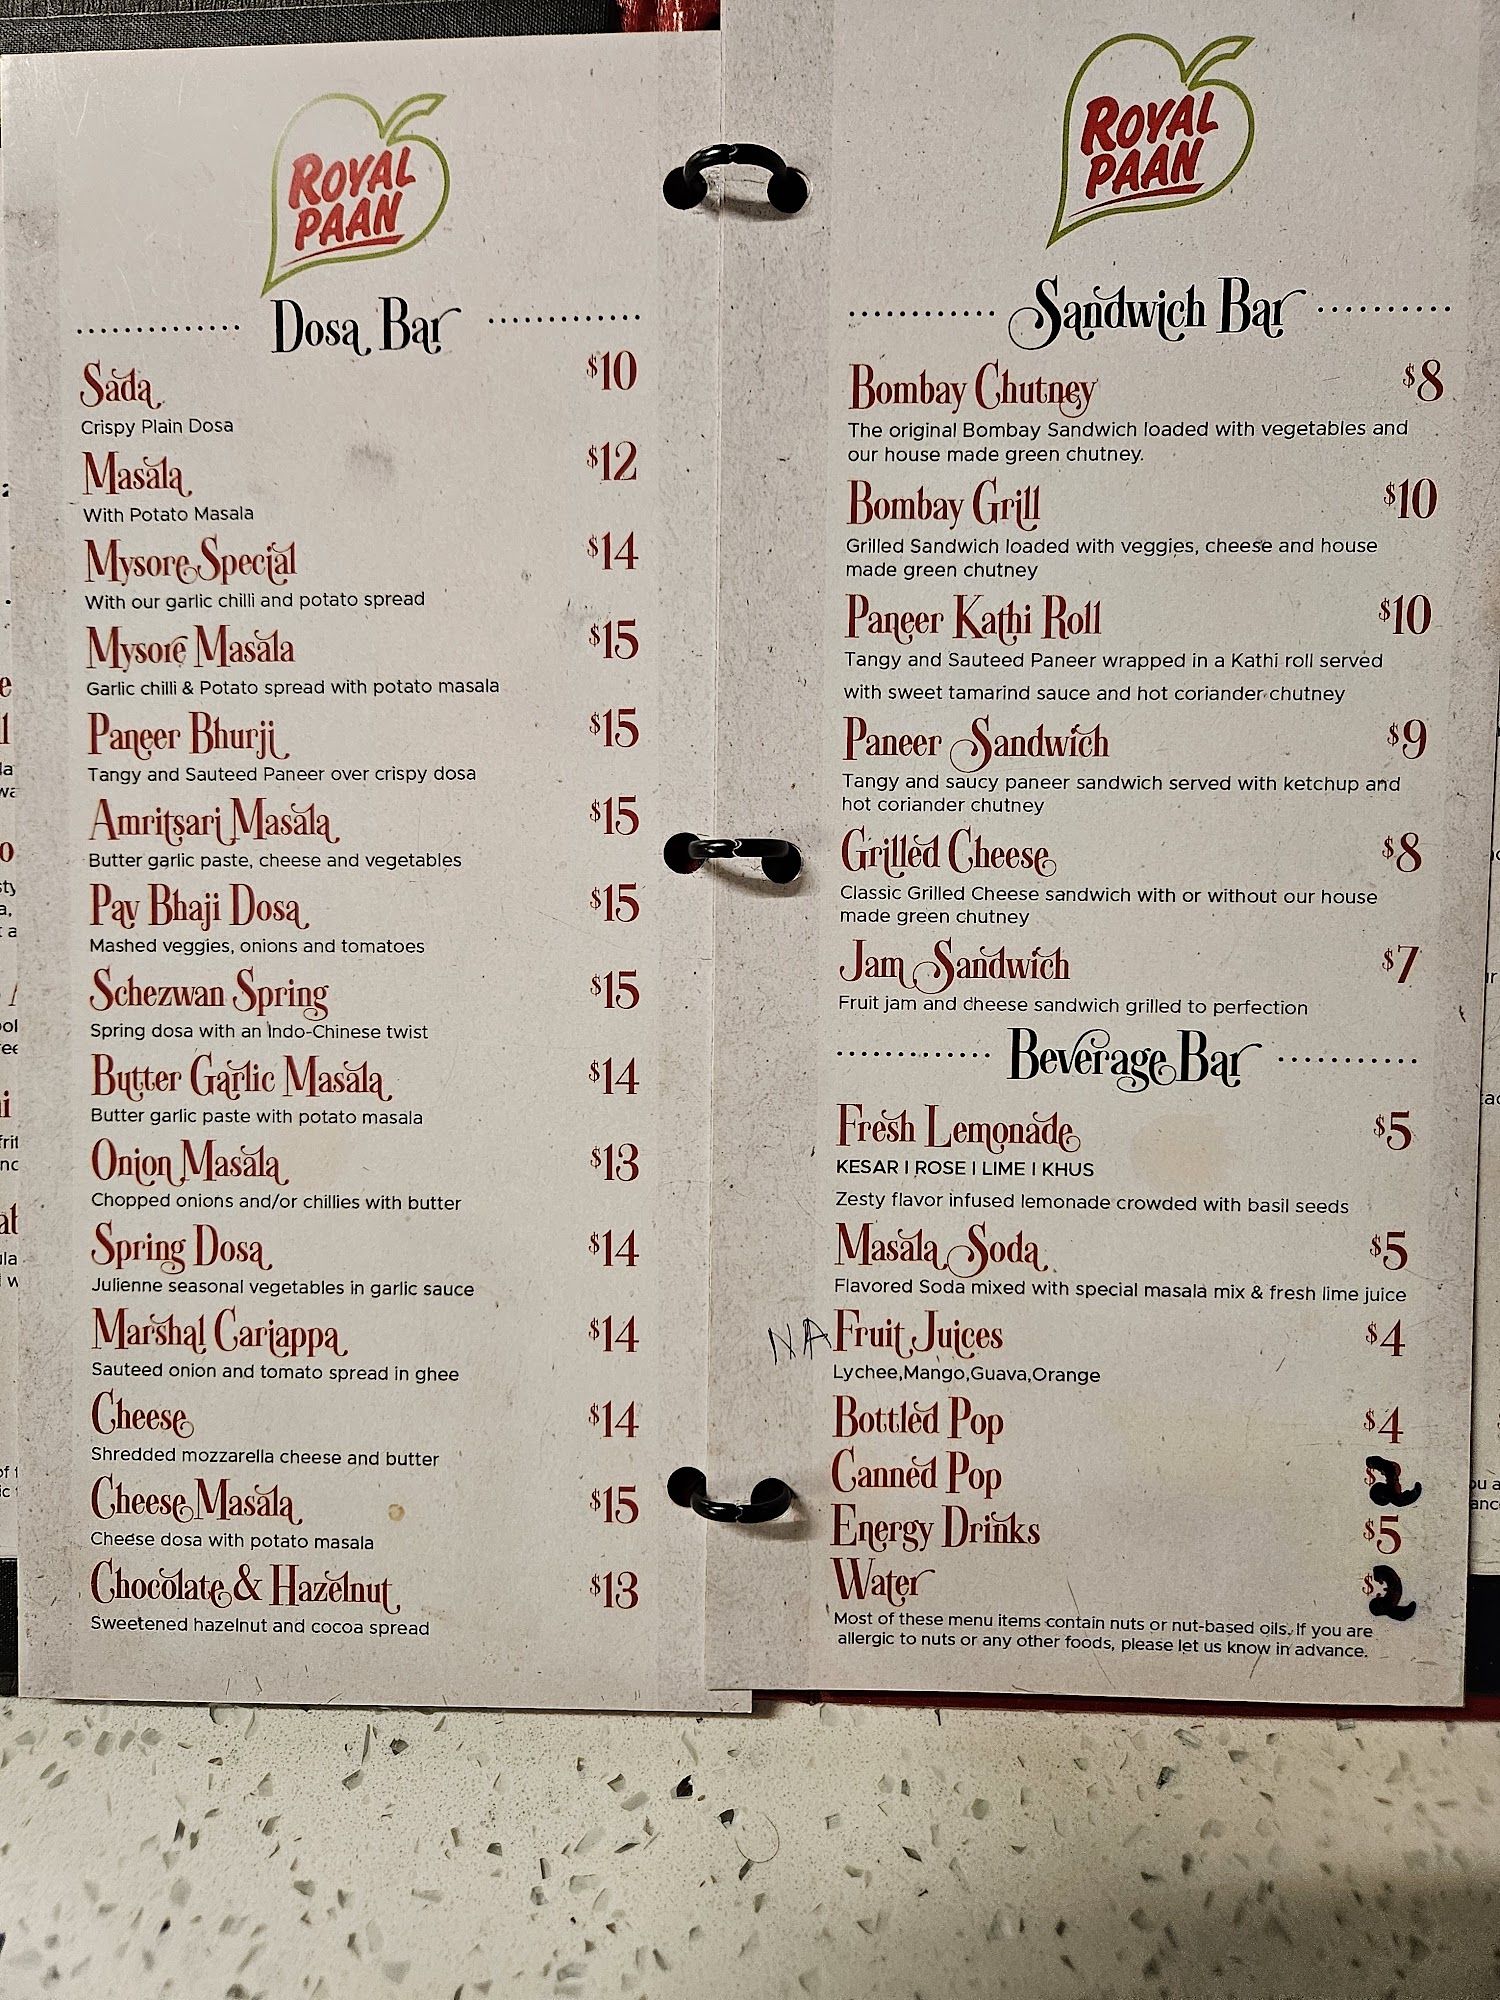 ROYAL
PAAN
Dosa Bar
Sada $10
Crispy Plain Dosa
Masala $12
With Potato Masala
Mysore Special $14
With our garlic chilli and potato spread
Mysore Masala $15
Garlic chilli & Potato spread with potato masala
Paneer Bhurji $15
Tangy and Sauteed Paneer over crispy dosa
Amritsari Masala $15
Butter garlic paste, cheese and vegetables
Pav Bhaji Dosa $15
Mashed veggies, onions and tomatoes
Schezwan Spring $15
Spring dosa with an Indo-Chinese twist
Butter Garlic Masala $14
Butter garlic paste with potato masala
Onion Masala $13
Chopped onions and/or chillies with butter
Spring Dosa $14
Julienne seasonal vegetables in garlic sauce
Marshal Cariappa $14
Sauteed onion and tomato spread in ghee
Cheese $14
Shredded mozzarella cheese and butter
Cheese Masala $15
Cheese dosa with potato masala
Chocolate & Hazelnut $13
Sweetened hazelnut and cocoa spread
ROYAL
PAAN
Sandwich Bar
Bombay Chutney $8
The original Bombay Sandwich loaded with vegetables and
our house made green chutney.
Bombay Grill $10
Grilled Sandwich loaded with veggies, cheese and house
made green chutney
Paneer Kathi Roll $10
Tangy and Sauteed Paneer wrapped in a Kathi roll served
with sweet tamarind sauce and hot coriander chutney
Paneer Sandwich $9
Tangy and saucy paneer sandwich served with ketchup and
hot coriander chutney
Grilled Cheese $8
Classic Grilled Cheese sandwich with or without our house
made green chutney
Jam Sandwich $7
Fruit jam and cheese sandwich grilled to perfection
Beverage Bar
Fresh Lemonade $5
KESAR | ROSE | LIME | KHUS
Zesty flavor infused lemonade crowded with basil seeds
Masala Soda $5
Flavored Soda mixed with special masala mix & fresh lime juice
NA Fruit Juices $4
Lychee,Mango,Guava,Orange
Bottled Pop $4
Canned Pop $2
Energy Drinks $5
Water $2
Most of these menu items contain nuts or nut-based oils. If you are
allergic to nuts or any other foods, please let us know in advance.